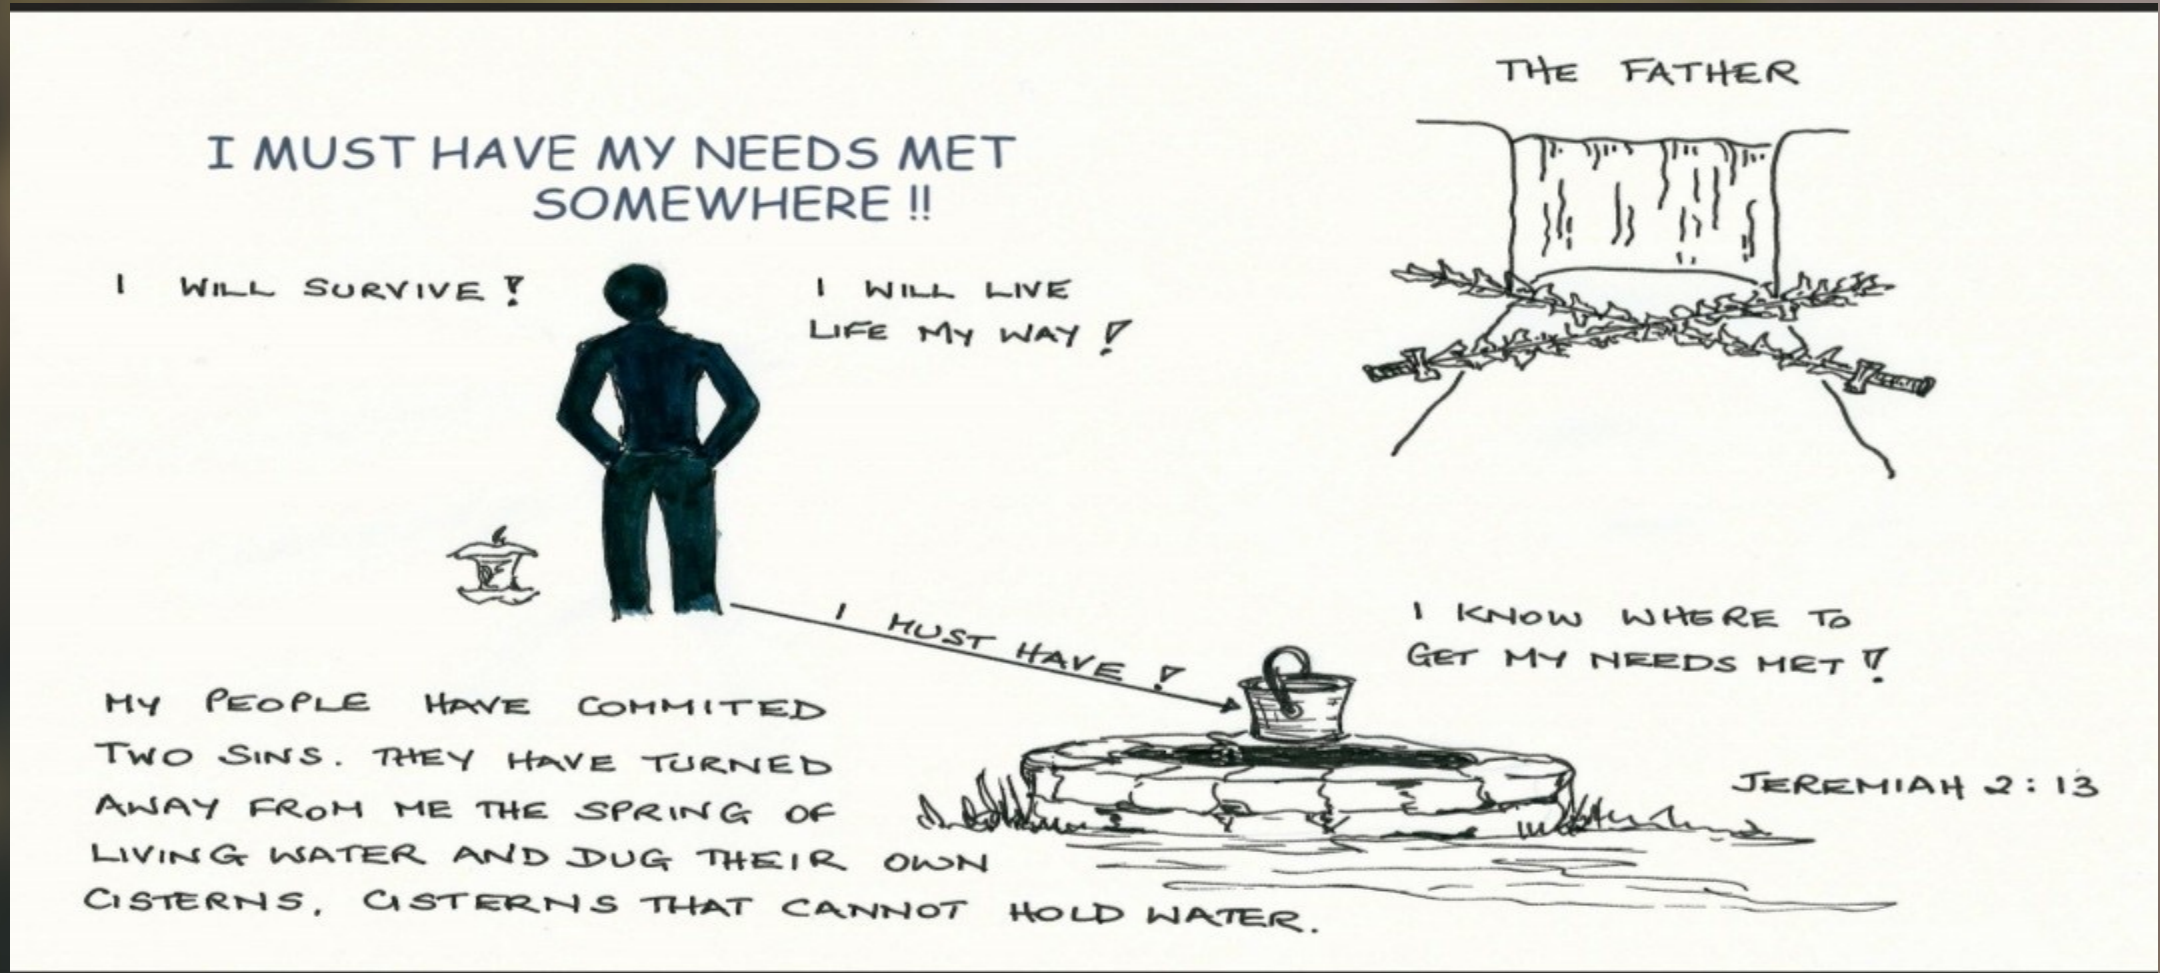 THE FATHER
I MUST HAVE MY NEEDS MET
SOMEWHERE !!
I WILL SURVIVE !
I WILL LIVE
LIFE MY WAY !
I MUST HAVE !
I KNOW WHERE TO
GET MY NEEDS MET !
MY PEOPLE HAVE COMMITED
TWO SINS. THEY HAVE TURNED
AWAY FROM ME THE SPRING OF
LIVING WATER AND DUG THEIR OWN
CISTERNS, CISTERNS THAT CANNOT HOLD WATER.
JEREMIAH 2:13